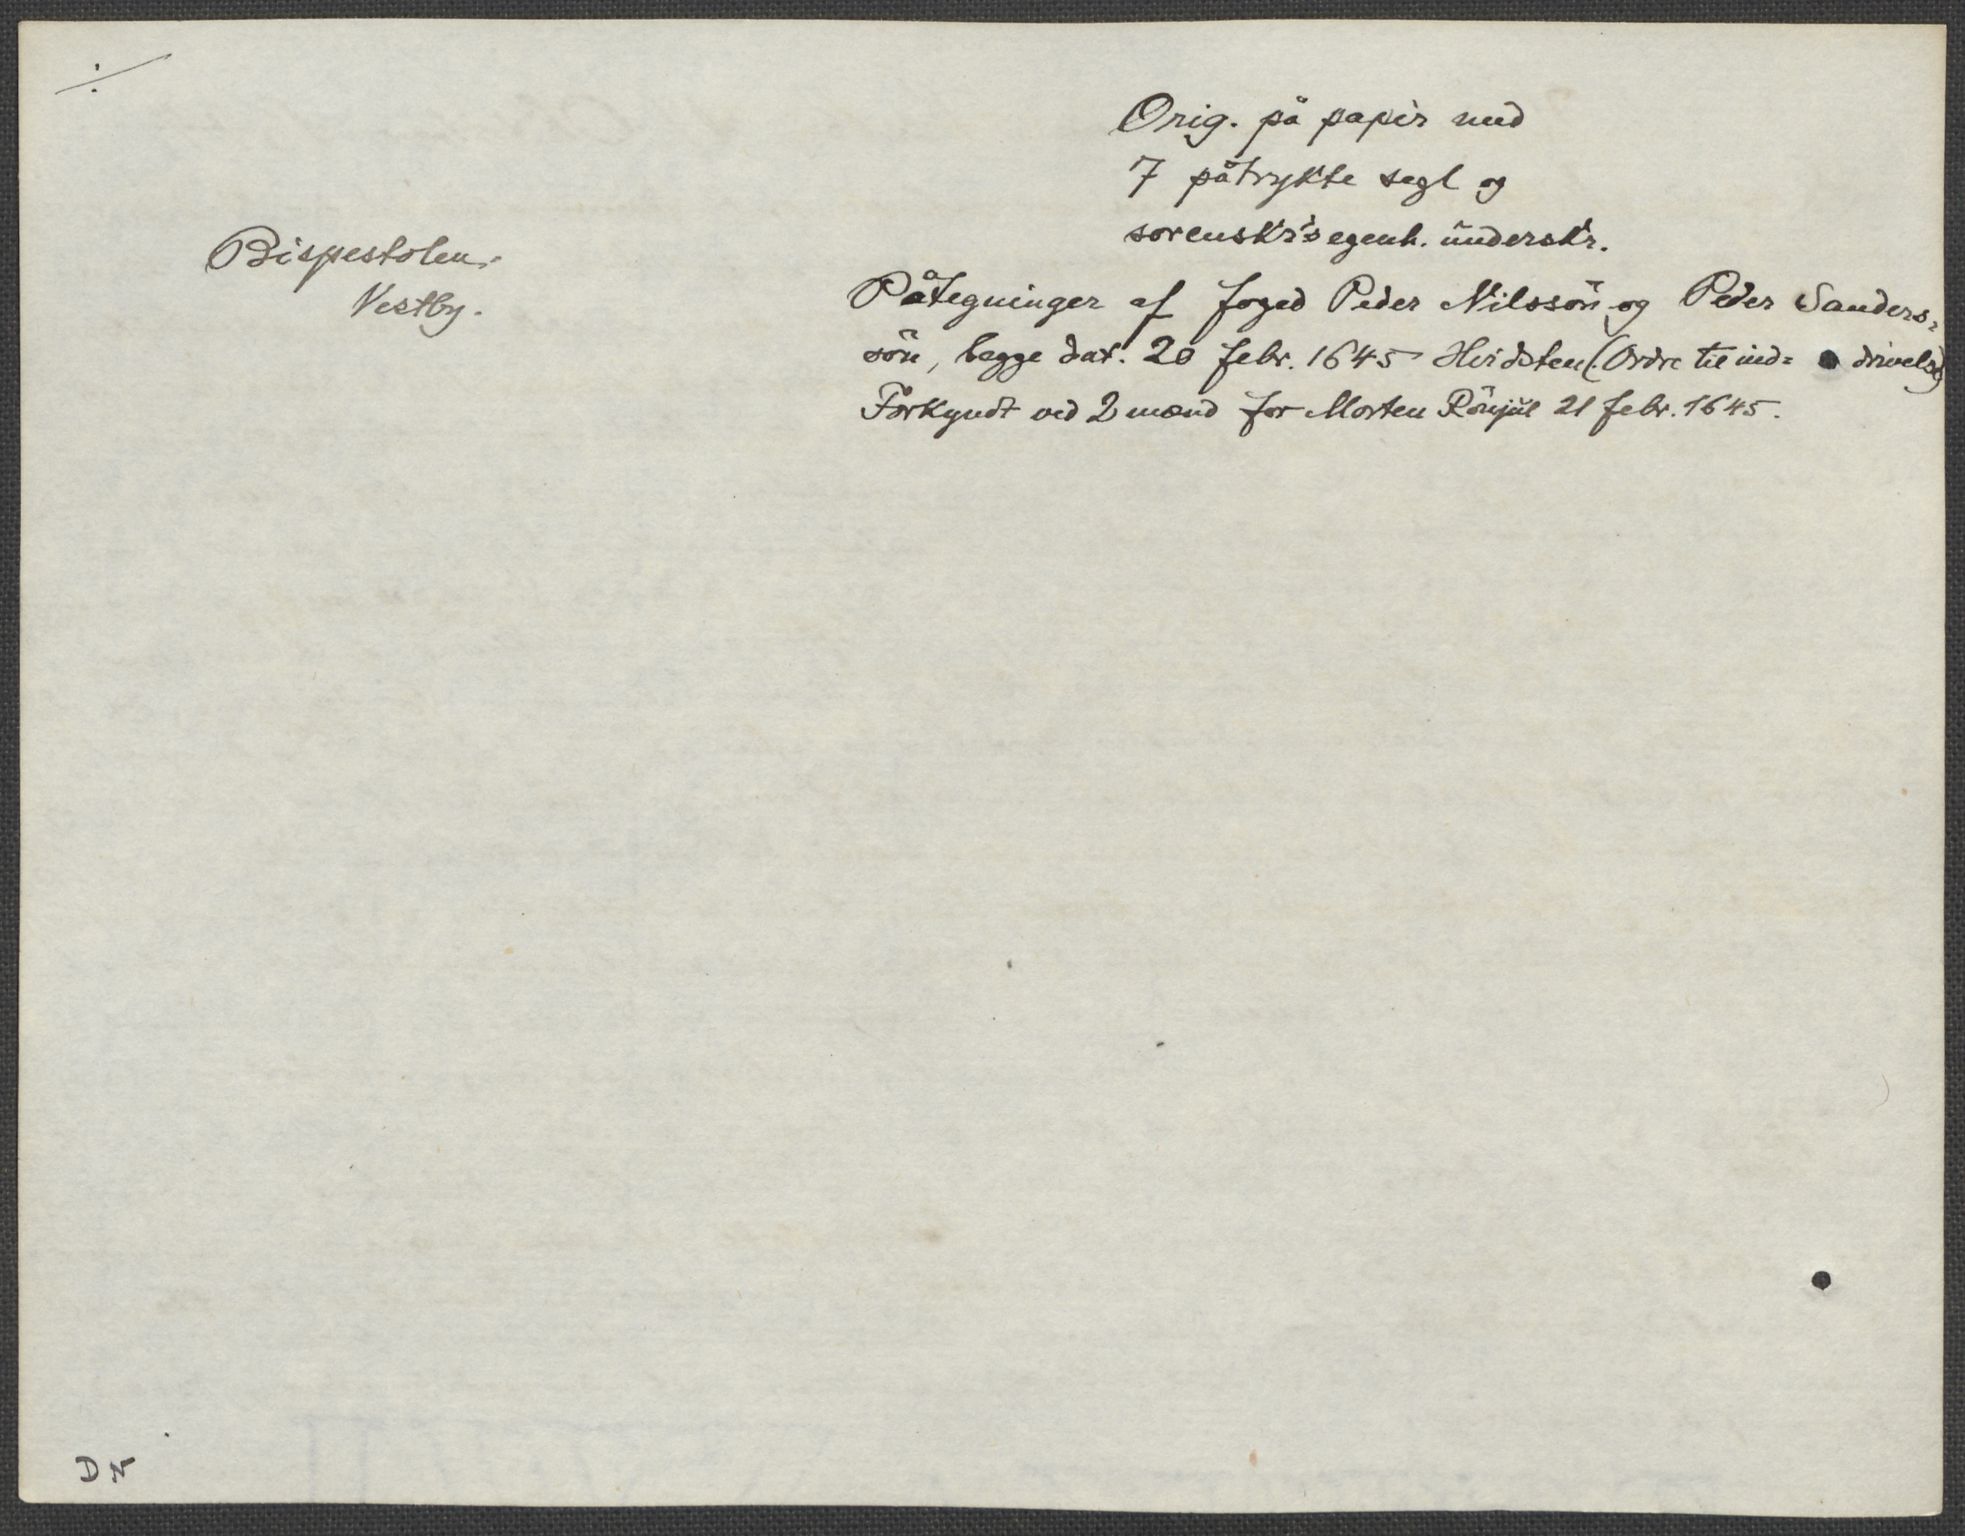 ÷
Orig. på papir med
7 påtrykte segl og
sorenskr's egenh. underskr.
Bispestolen.
Vestby.
Påtegninger af foged Peder Nilssön og Peder Sanders-
sön, begge dat. 20 febr. 1645 Hvidsten (: Ordre til ind= drivelse)
Forkyndt ved 2 mænd for Morten Rönjul 21 febr. 1645.
DN